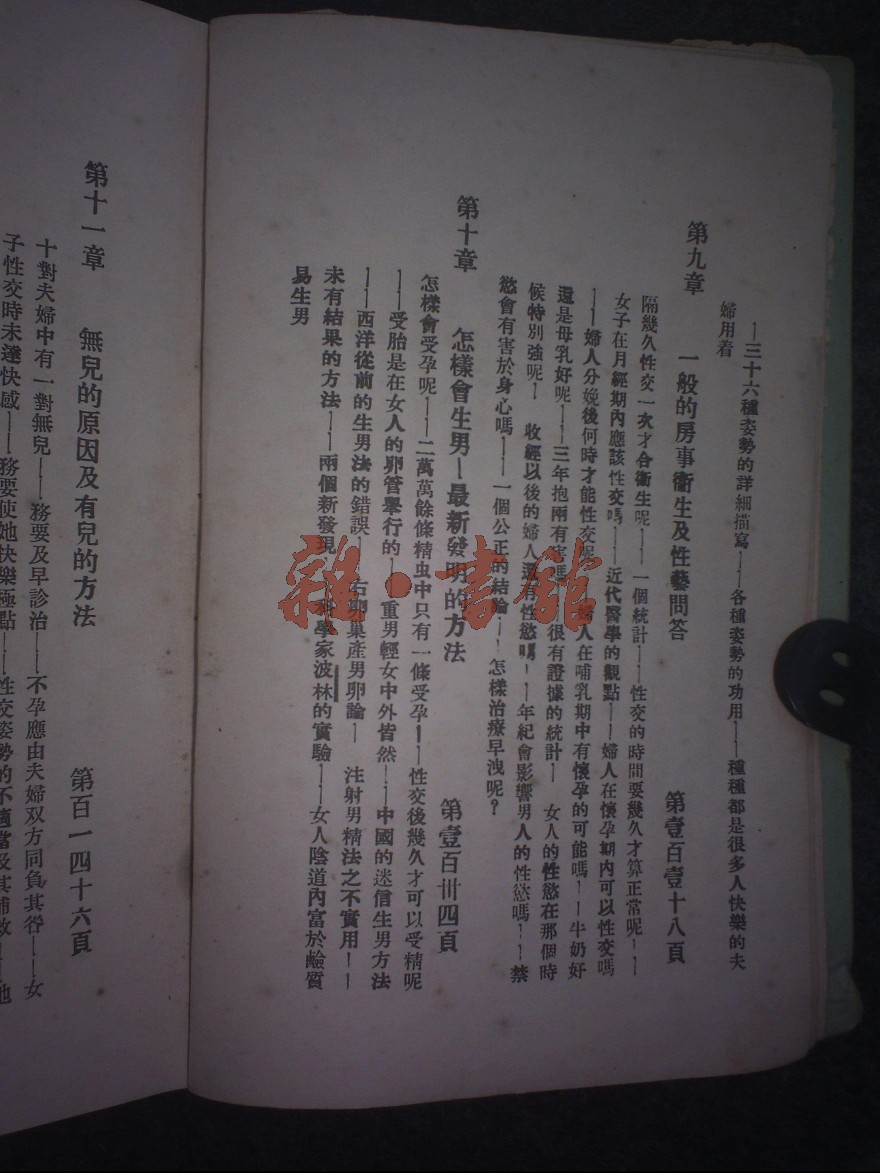 ——三十六種姿勢的詳細描寫——各種姿勢的功用——種種都是很多人快樂的夫
婦用着
第九章 一般的房事衞生及性藝問答 第壹百壹十八頁
隔幾久性交一次才合衞生呢——一個統計——性交的時間要幾久才算正常呢——
女子在月經期內應該性交嗎——近代醫學的觀點——婦人在懷孕期內可以性交嗎
——婦人分娩後何時才能性交呢——婦人在哺乳期中有懷孕的可能嗎——牛奶好
還是母乳好呢——三年抱兩有害嗎——很有證據的統計——女人的性慾在那個時
候特別強呢——收經以後的婦人還有性慾嗎——年紀會影響男人的性慾嗎——禁
慾會有害於身心嗎——一個公正的結論——怎樣治療早洩呢?
第十章 怎樣會生男—最新發明的方法 第壹百卅四頁
怎樣會受孕呢——二萬萬餘條精虫中只有一條受孕——性交後幾久才可以受精呢
——受胎是在女人的卵管舉行的——重男輕女中外皆然——中國的迷信生男方法
——西洋從前的生男法的錯誤——右卵巢產男卵論——注射男精法之不實用——
未有結果的方法——兩個新發現——科學家波林的實驗——女人陰道內富於鹼質
易生男
第十一章 無兒的原因及有兒的方法 第百一四十六頁
十對夫婦中有一對無兒——務要及早診治——不孕應由夫婦双方同負其咎——女
子性交時未達快感——務要使她快樂極點——性交姿勢的不適當及其補救——他
雜·書館